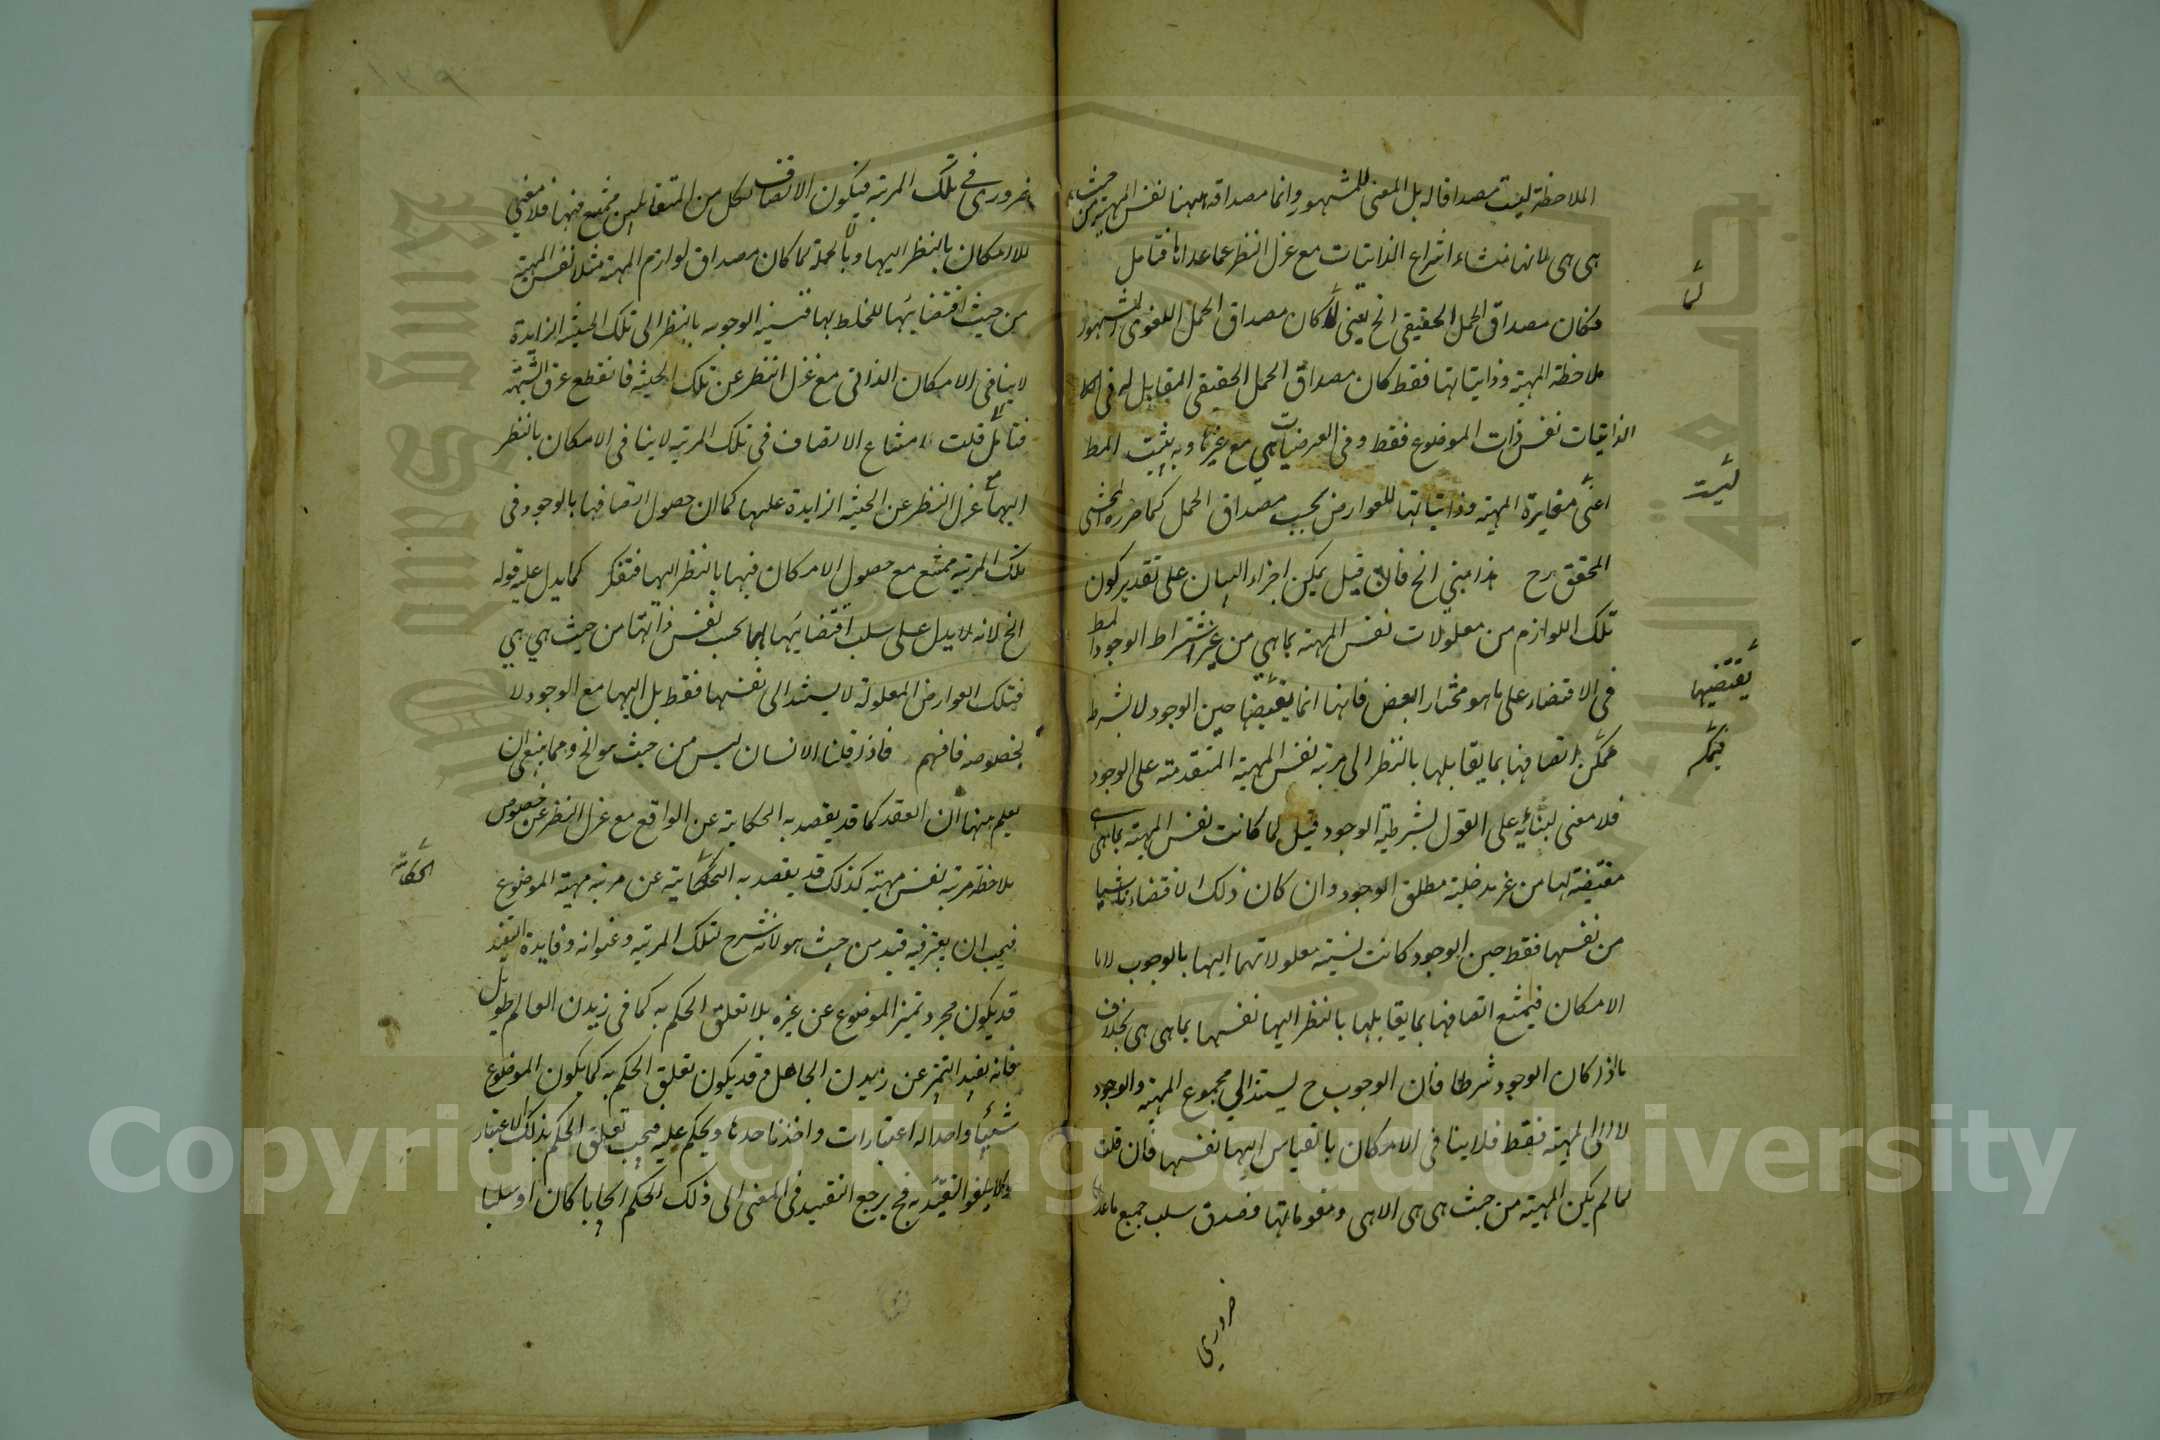 الملاحظة ليست مصداقا له بل المعنى للمشهور وانما مصداقه ههنا نفس المهية من حيث
هي هي لانها منشاء انتزاع الذاتيات مع عزل النظر عما عداها فتامل
فكان مصداق الحمل الحقيقي الخ يعني لما كان مصداق الحمل اللغوي المشهور
ملاحظة المهية وذاتياتها فقط كان مصداق الحمل الحقيقي المقابل له في
الذاتيات نفس ذات الموضوع فقط وفي العرضيات هي مع غيرها وبه يثبت المط
اعني مغايرة المهية وذاتياتها للعوارض بحسب مصداق الحمل كما حرره المحشي
المحقق رح هذا مبني الخ فان قيل يمكن اجراء البيان على تقدير كون
تلك اللوازم من معلولات نفس المهية بما هي من غير اشتراط الوجود المط
في الاقتضاء على ما هو مختار البعض فانها انما يقتضيها حين الوجود لا بشرط
ممكن اتصافها بما يقابلها بالنظر الى مرتبة نفس المهية المتقدمة على الوجود
فلا معنى لبنائه على القول بشرطية الوجود قيل لما كانت نفس المهية بما هي
مقتضية لها من غير مدخلية مطلق الوجود وان كان ذلك الاقتضاء ناشيا
من نفسها فقط حين الوجود كانت نسبة معلولاتهما اليها بالوجوب لا
الامكان فيمتنع اتصافها بما يقابلها بالنظر اليها نفسها بما هي هي بخلاف
ما اذا كان الوجود شرطا فان الوجوب ح يستند الى مجموع المهية والوجود
لا الى المهية فقط فلا ينافي الامكان بالقياس اليها نفسها فان قلت
لما لم يكن المهية من حيث هي هي الا هي ومقوماتها فصدق سلب جميع ما عداها
ضروري
لما
ليست
يقتضيها
فيمكن
ضروري في تلك المرتبة فيكون الاتصاف لكل من المتقابلين ممتنع فيها فلا معنى
للامكان بالنظر اليها وبالجملة لما كان مصداق لوازم المهية مثلا نفس المهية
من حيث اقتضائها للخلط بها فنسبة الوجوب بالنظر الى تلك الحيثية الزايدة
لا ينافي الامكان الذاتي مع عزل النظر عن تلك الحيثية فانقطع عرق الشبهة
فتامل قلت امتناع الاتصاف في تلك المرتبة لا ينافي الامكان بالنظر
اليها مع عزل النظر عن الحيثية الزايدة عليها كما ان حصول اتصافها بالوجود في
تلك المرتبة ممتنع مع حصول الامكان فيها بالنظر اليها فتفكر كما يدل عليه قوله
الخ لانه لا يدل على سلب اقتضائها لها بحسب نفس ذاتها من حيث هي هي
فتلك العوارض المعلولة لا يستند الى نفسها فقط بل اليها مع الوجود لا
بخصوصه فافهم فاذا قلنا الانسان ليس من حيث هو الخ ومما ينبغي ان
يعلم منها ان العقد كما قد يقصد به الحكاية عن الواقع مع عزل النظر عن خصوص
ملاحظة مرتبة نفس مهيته كذلك قد يقصد به الحكاية عن مرتبة مهية الموضوع
فيجب ان يعتبر فيه قيد من حيث هو لانه شرح لتلك المرتبة وعنوانه وفايدة التقيد
قد يكون مجرد تميز الموضوع عن غيره بلا تعلق الحكم به كما في زيدن العالم طويل
فانه يفيد التميز عن زيدن الجاهل وقد يكون تعلق الحكم به كما يكون الموضوع
شيئا واحدا له اعتبارات واخذنا احدها ويحكم عليه فيجب تعلق الحكم بذلك الاعتبار
ولا يلغو التقييد به فح يرجع التقييد في المعنى الى ذلك الحكم ايجابا كان او سلبا
الحكاية
Copyright © King Saud University